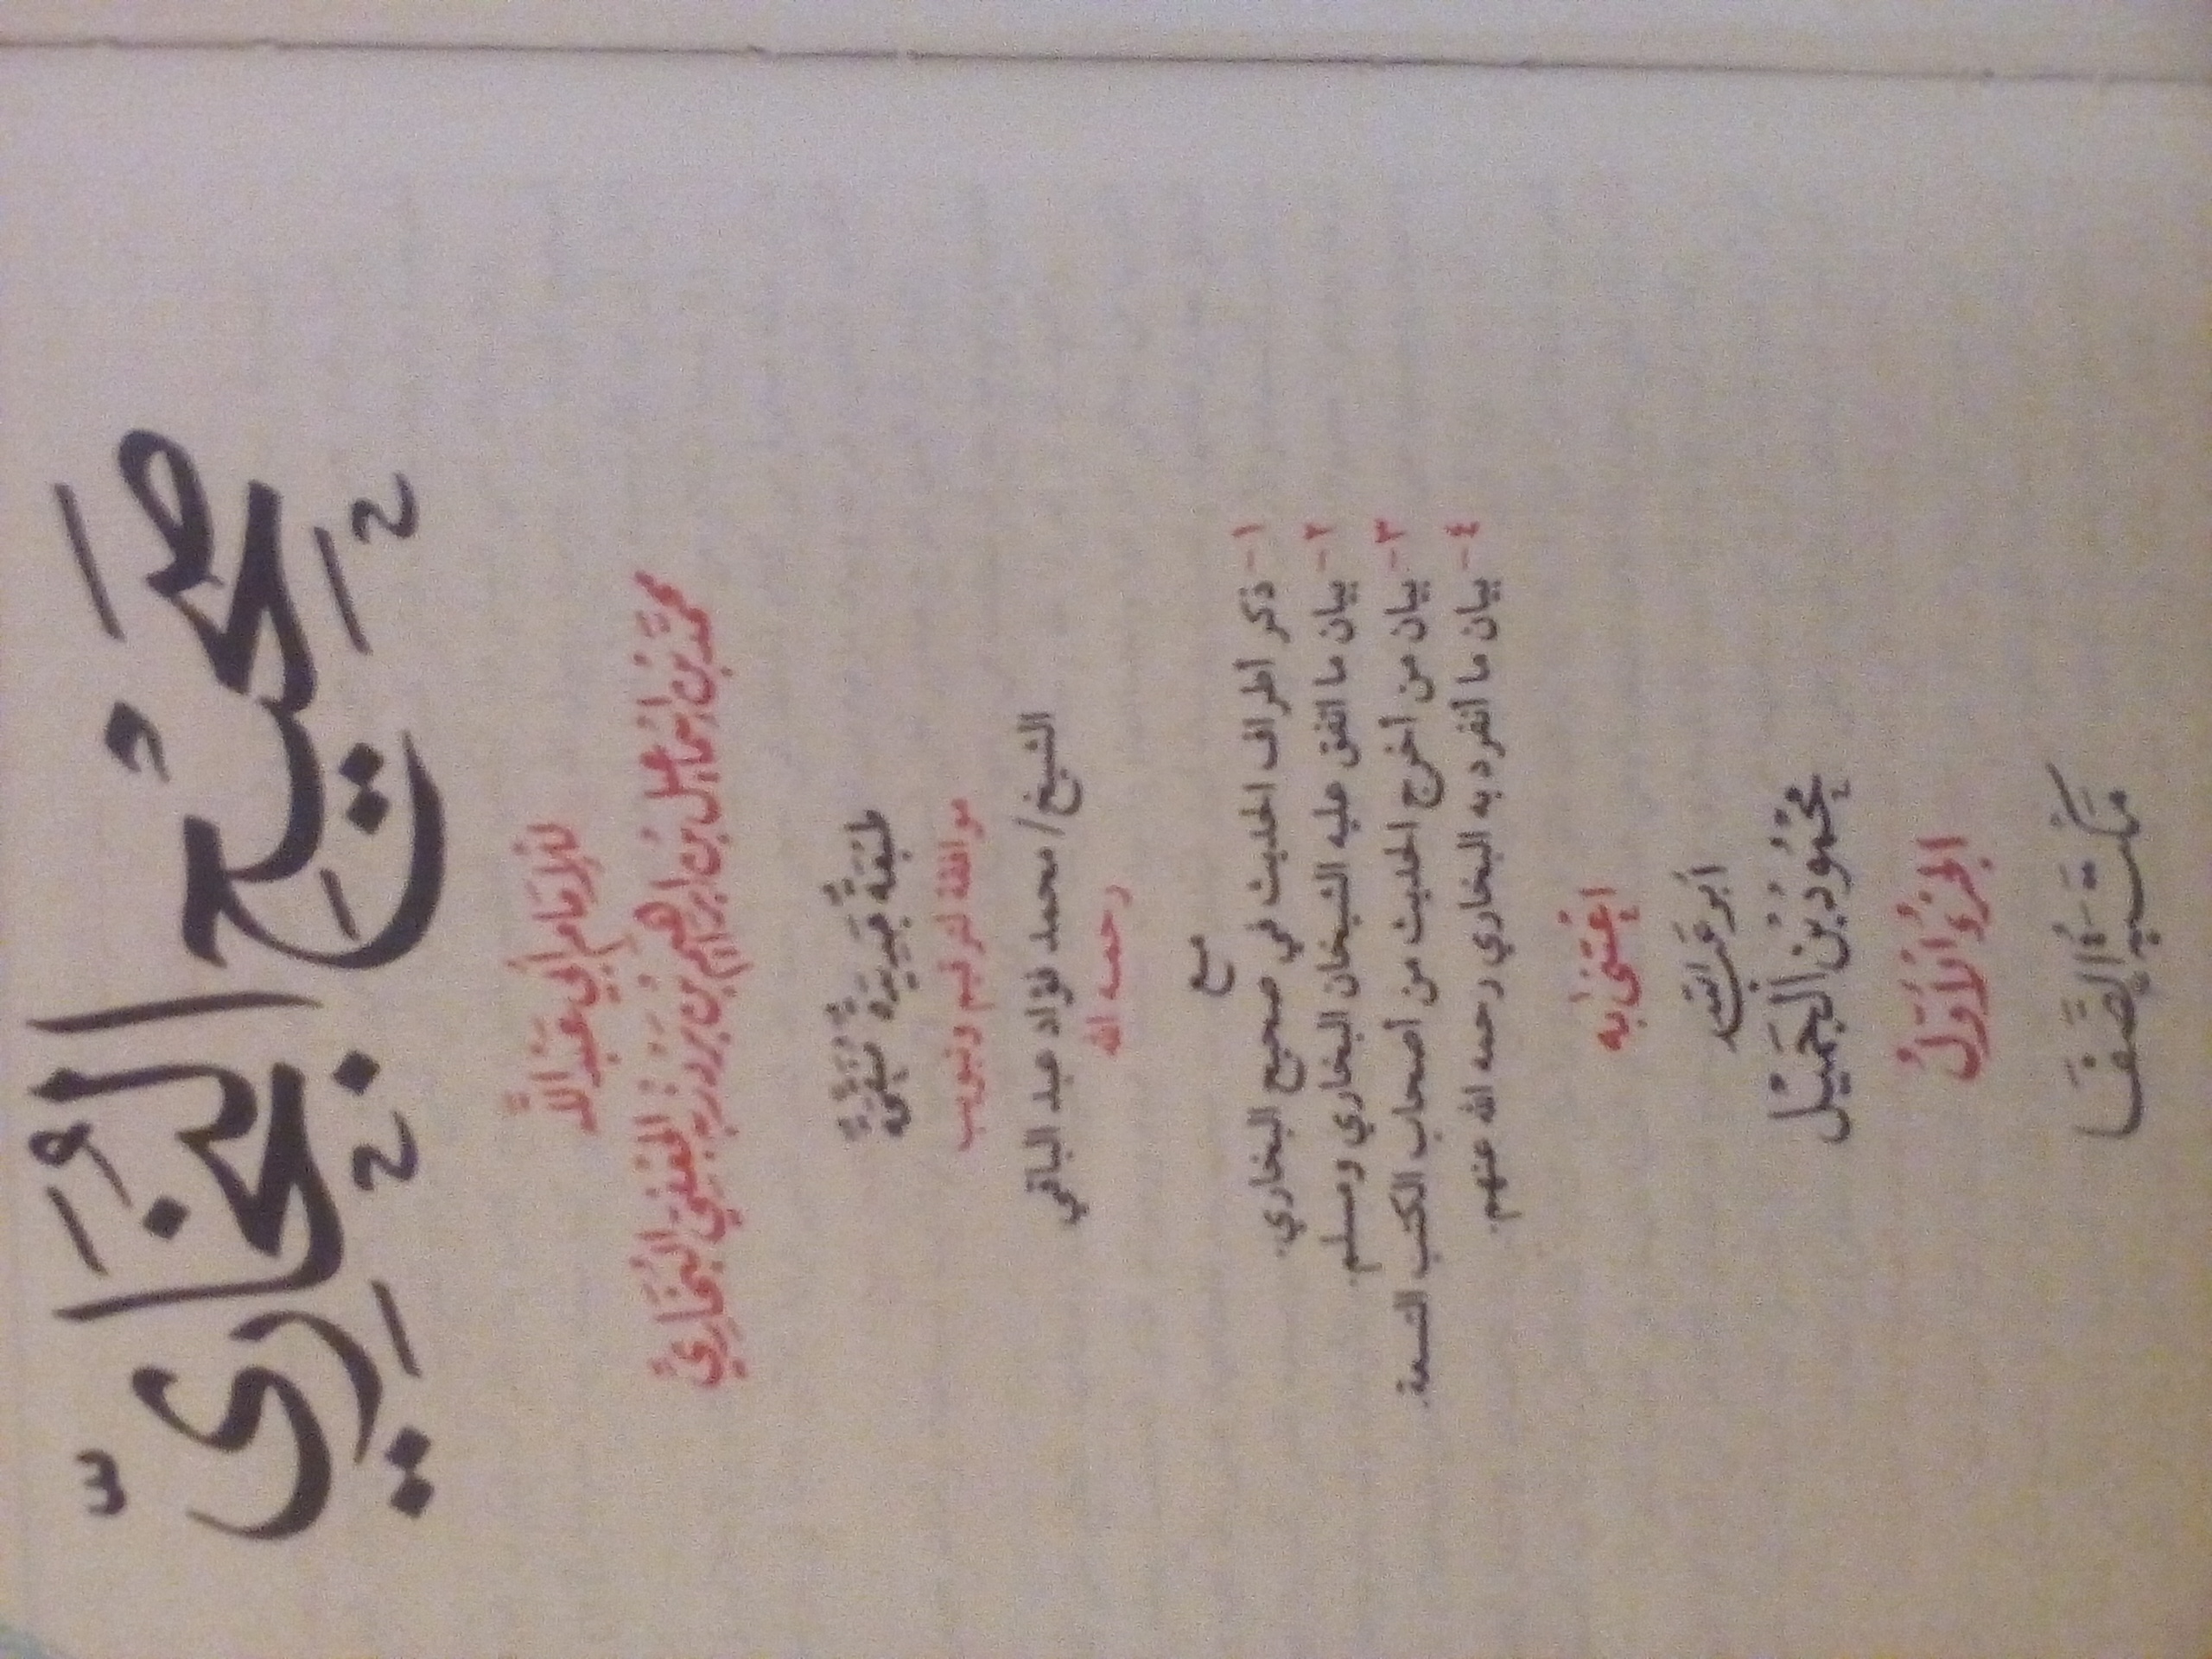 صَحِيحُ البُخَارِيّ
للإمَام أبي عَبْد اللَّه
محمَّد بن إسْمَاعيل بن إبراهيم بن بَرْدِزْبَه الجُعْفيّ البُخَاريّ
طَبْعَةٌ جَدِيْدَةٌ مُنَقَّحَةٌ
موافقة لترقيم وتبويب
الشيخ/ محمد فؤاد عبد الباقي
رحمه الله
مع
١- ذكر أطراف الحديث في صحيح البخاري.
٢- بيان ما اتفق عليه الشيخان البخاري ومسلم.
٣- بيان من أخرج الحديث من أصحاب الكتب التسعة.
٤- بيان ما أنفرد به البخاري رحمه الله عنهم.
اعْتَنىٰ به
أبو عَبدالله
محْمُود بْن الجَمِيْل
الجُزْءُ الأوَّلُ
مَكتَبَةُ الصَّفَا